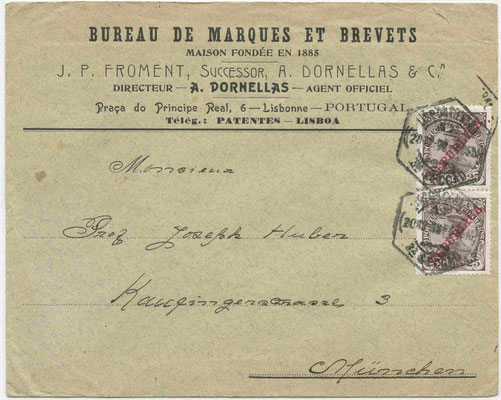 BUREAU DE MARQUES ET BREVETS
MAISON FONDÉE EN 1885
J. P. FROMENT, SUCCESSOR, A. DORNELLAS & C.ª
DIRECTEUR — A. DORNELLAS — AGENT OFFICIEL
Praça do Principe Real, 6 — Lisbonne — PORTUGAL
Télég.: PATENTES — LISBOA
Monsieur
Prof Joseph Huber
Kaufingerstrasse 3
München
REPUBLICA
25
REPUBLICA
25